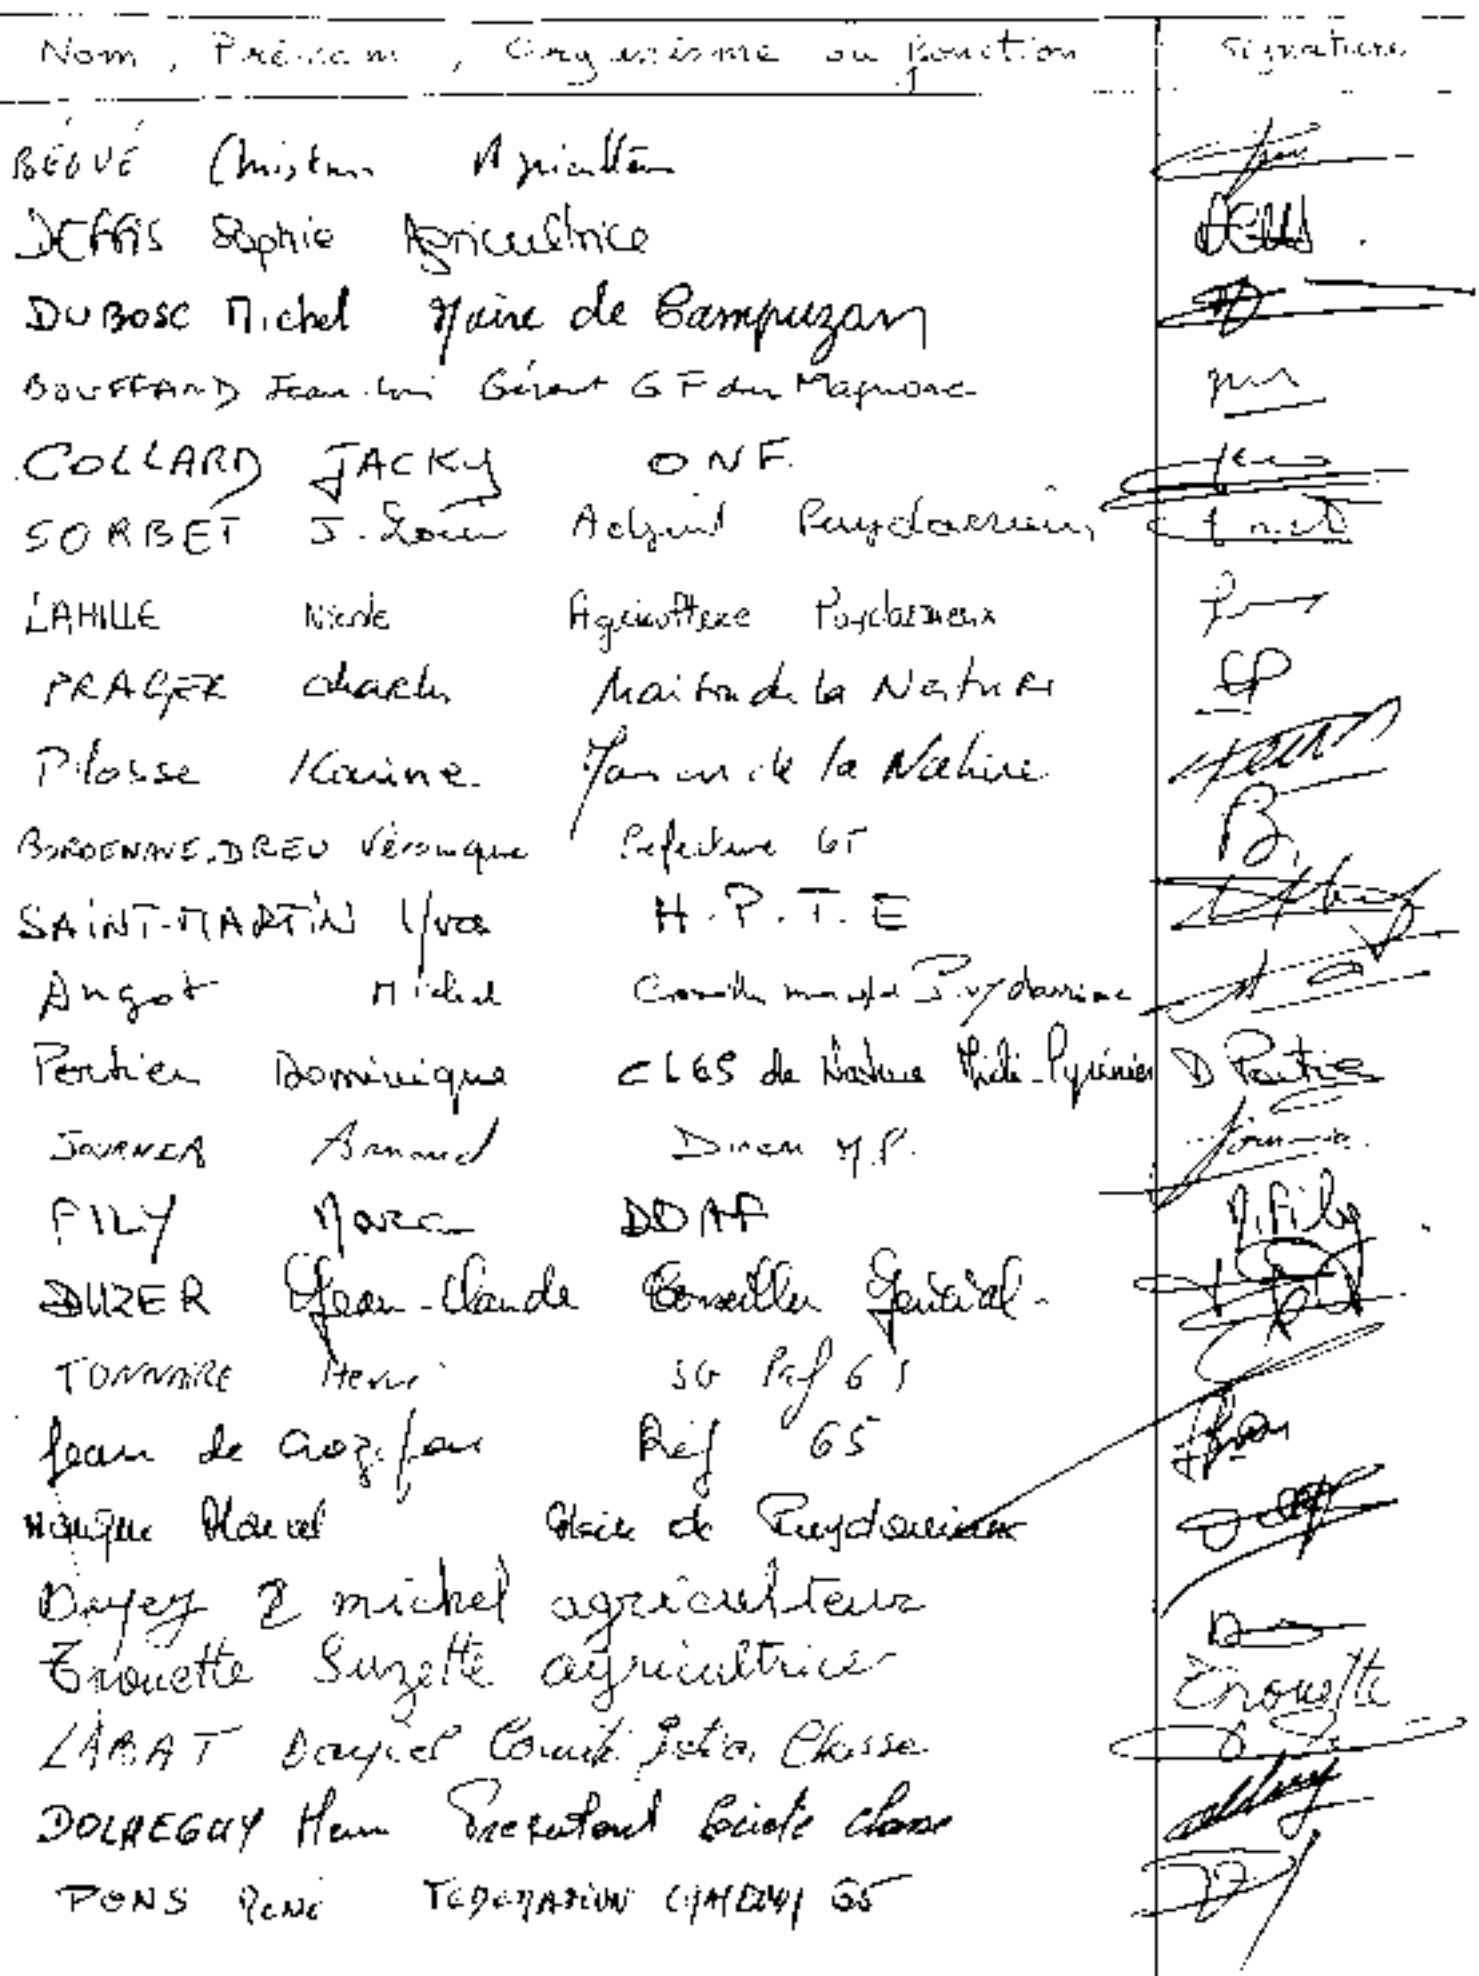 Nom, Prénom, Organisme ou fonction Signature
BÉGUÉ Christian Agriculteur
DEFFIS Sophie Agricultrice
DUBOSC Michel Maire de Campuzan
BOUFFARD Jean-Loui Gérant GF du Magnoac
COLLARD JACKY ONF.
SORBET J. Louis Adjoint Puydarrieux
LAHILLE Nicole Agricultrice Puydarrieux
PRAGER Charles Maison de la Nature
Pilosse Karine Maison de la Nature
BORDENAVE.DREU Véronique Préfecture 65
SAINT-MARTIN Yves H.P.T.E
Angot Michel Conseiller Puydarrieux
Portier Dominique de Nature Midi-Pyrénées D Portier
Arnaud Diren M.P.
FILY Marc DDAF M. Fily
DUZER Jean-Claude Conseiller Général
TONNAIRE Henri SG Préf 65
Jean de 65
Marcel Maire de Puydarrieux
michel agriculteur
Trouette Suzette agricultrice Trouette
LABAT Daniel Chasse
DOLHEGUY Henri Société chasse
PONS René FEDERATION 65